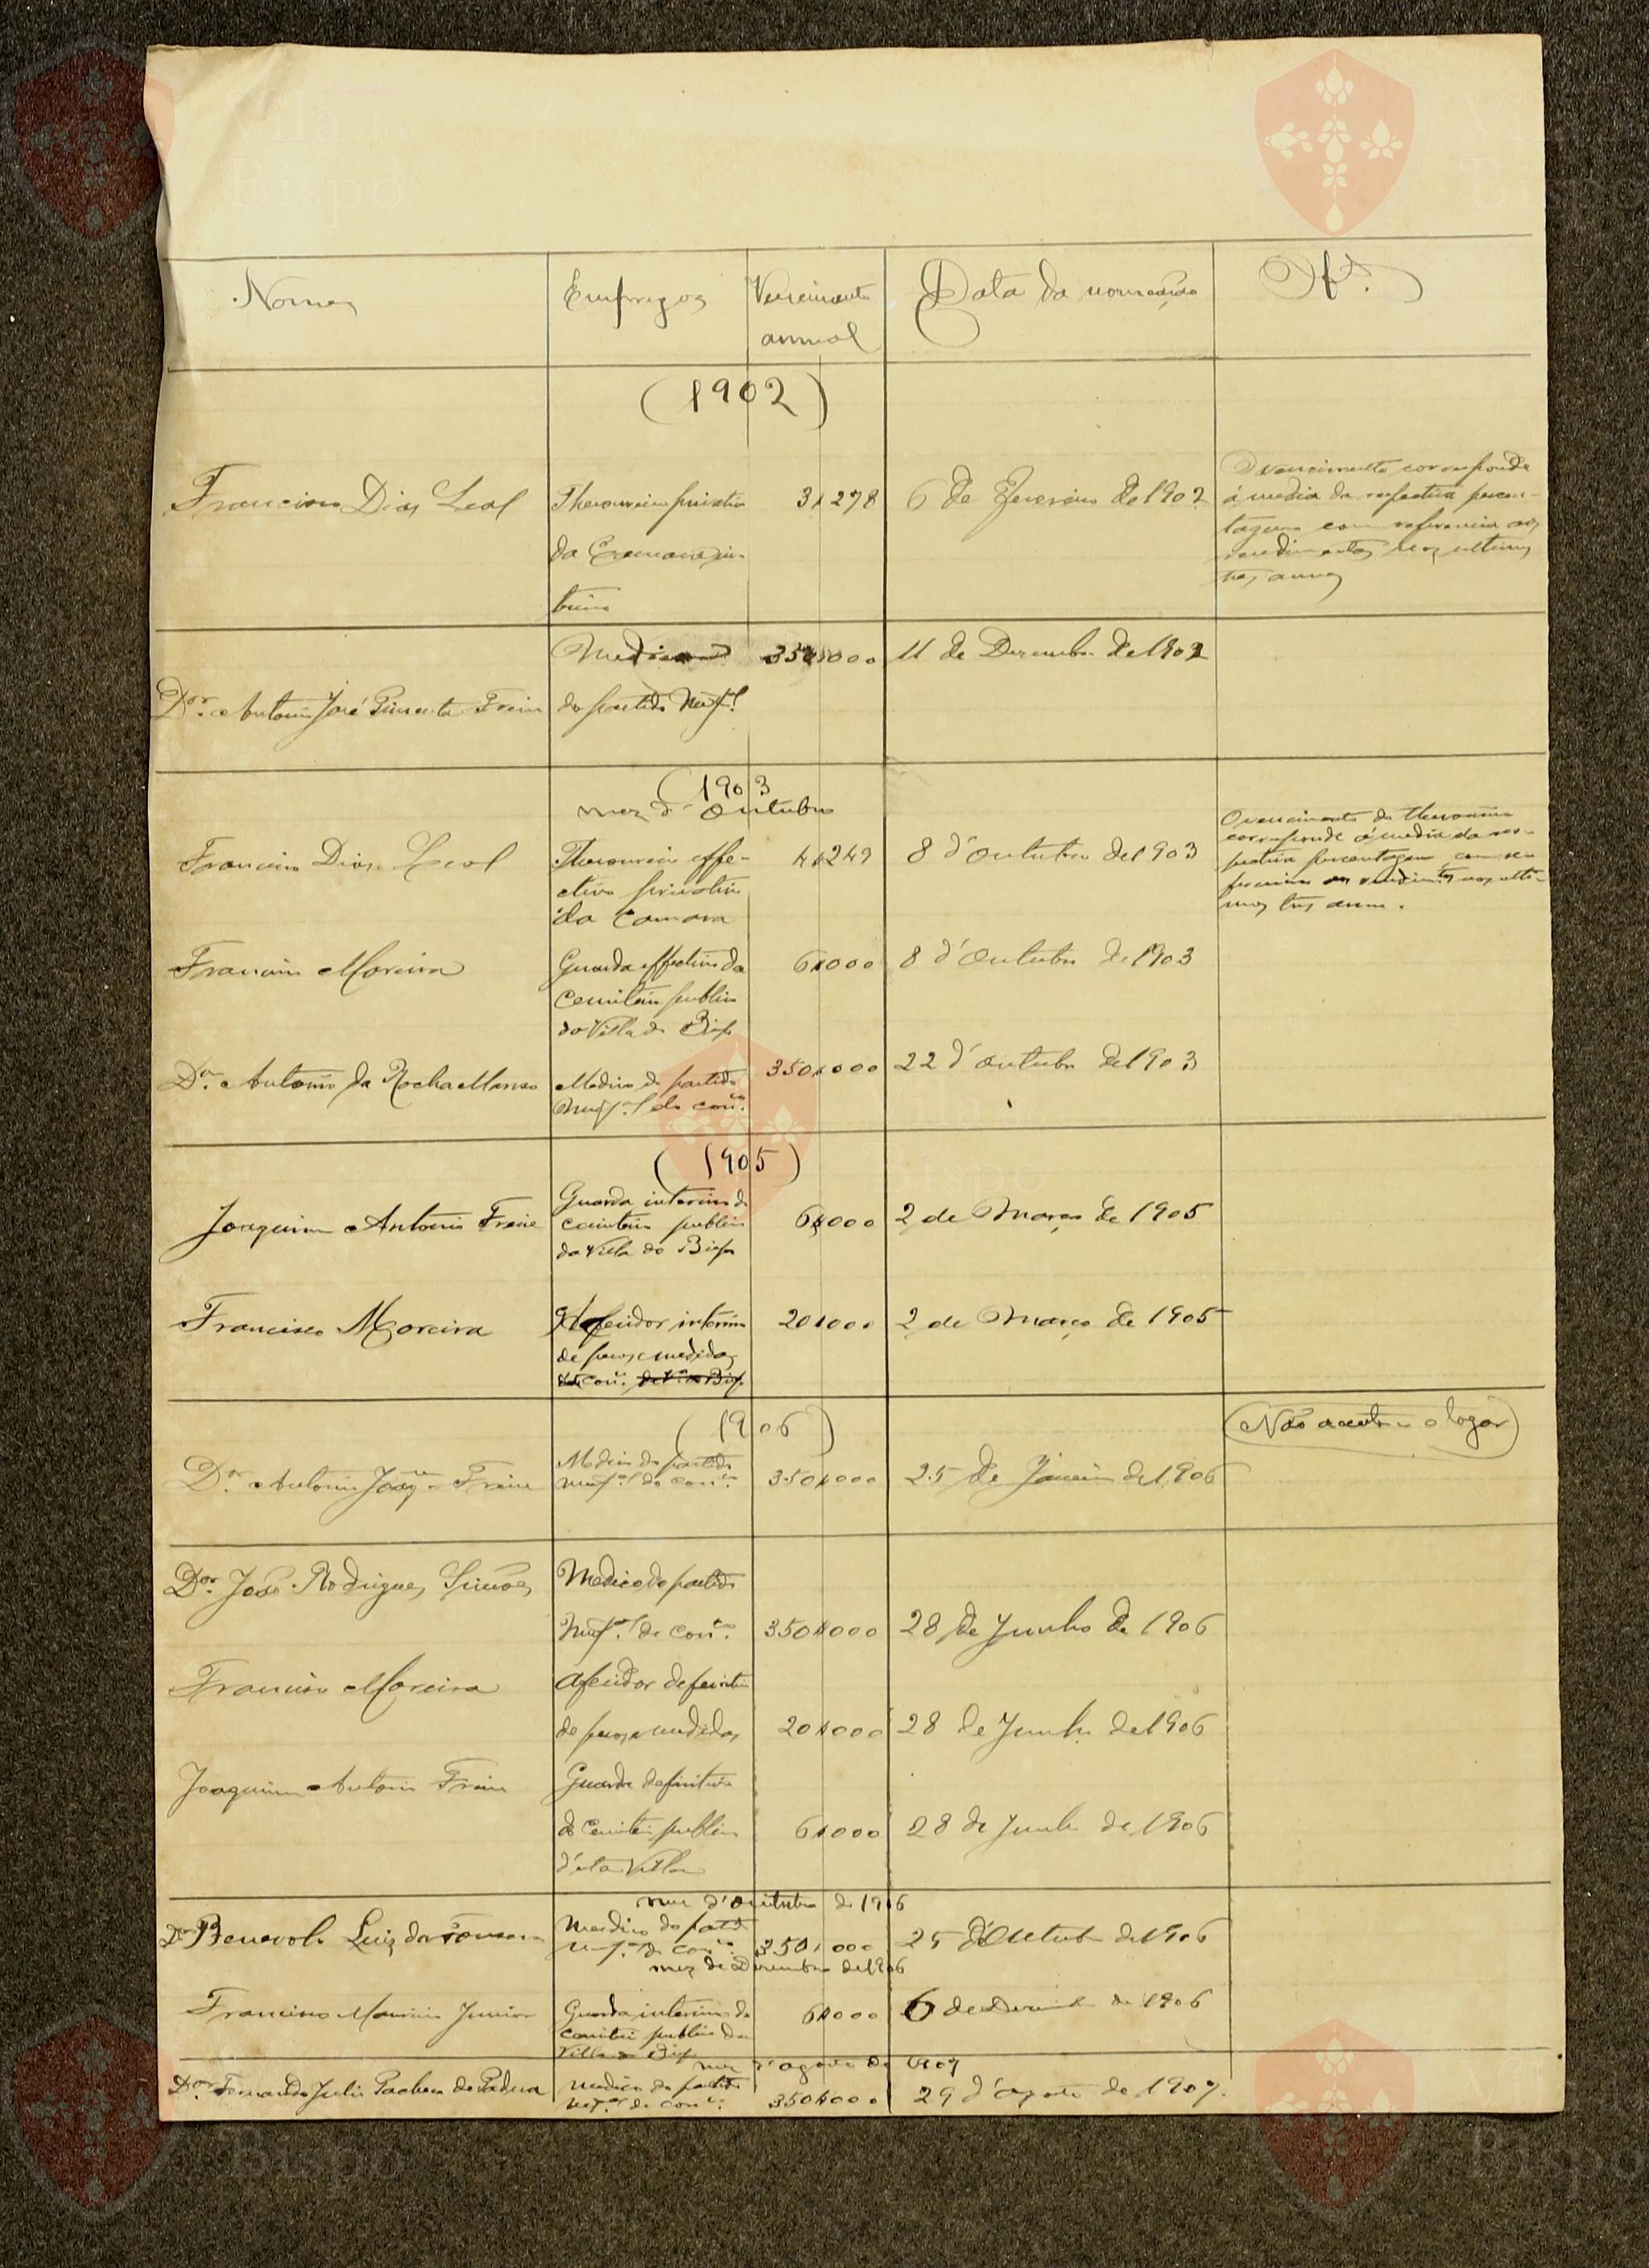 Nomes Empregos Vencimento annual Data da nomeação
(1902)
Francisco Dias Leal Thesoureiro privativo 31$278 6 de Fevereiro de 1902 O vencimento corresponde
da Camara in- á media da respectiva percen-
terino tagem com referencia aos
rendimentos nos ultimos
tres annos
Medico 350$000 11 de Dezembro de 1902
Dor. Antonio José Pimenta Freire do partido Mupal
(1903
mez d'Outubro
Francisco Dias Leal Thesoureiro effe- 41$249 8 d'Outubro de 1903 O vencimento do thesoureiro
ctivo privativo corresponde á media da res-
da Camara pectiva percentagem com re-
ferencia aos rendimentos nos ulti-
mos tres annos.
Francisco Moreira Guarda effectivo do 6$000 8 d'Outubro de 1903
Cemiterio publico
da Villa do Bispo
Dr. Antonio da Rocha Manso Medico do partido 350$000 22 d'Outubro de 1903
Mupal do conco.
(1905)
Joaquim Antonio Freire Guarda interino do 6$000 2 de Março de 1905
cemiterio publico
da Villa do Bispo
Francisco Moreira Afferidor interino 20$000 2 de Março de 1905
de pesos e medidas
conco.
(1906) Não acceitou o logar
Dr. Antonio Joaqm Freire Medico do partido 350$000 25 de Janeiro de 1906
mupal do conco.
Dor. João Rodrigues Simões Medico do partido
Mupal do conco. 350$000 28 de Junho de 1906
Francisco Moreira Aferidor definitivo
de pesos e medidas 20$000 28 de Junho de 1906
Joaquim Antonio Freire Guarda definitivo
do Cemiterio publico 6$000 28 de Junho de 1906
d'esta Villa
mez d'Outubro de 1906
Dor Benevolo Luiz da Medico do partido
mupal do conco. 350$000 25 d'Outubro de 1906
mez de Dezembro de 1906
Francisco Junior Guarda interino do 6$000 6 de Dezembro de 1906
cemiterio publico da
Villa do Bispo
mez d'agosto de 1907
Dor. Fernando Julio Pacheco de Padua Medico do partido
mupal do conco. 350$000 29 d'agosto de 1907.
Vila do
Bispo